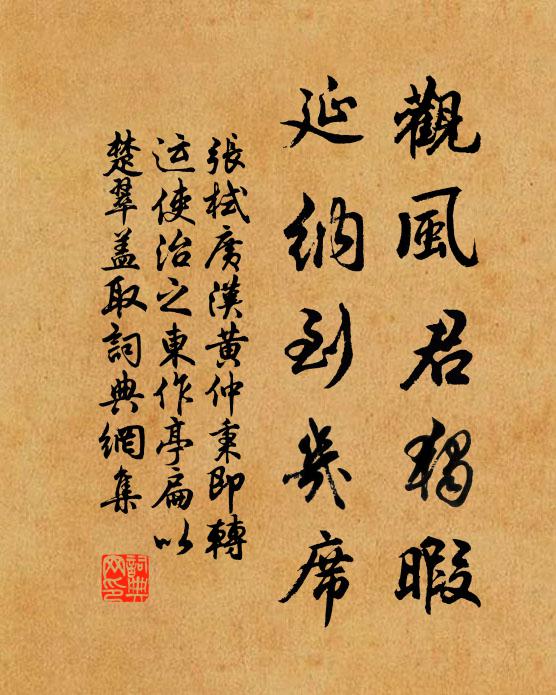 觀風君獨暇
延納到幾席
張栻廣漢黃仲秉即轉
運使治之東作亭扁以
楚翠蓋取詞典網集
詞典網印